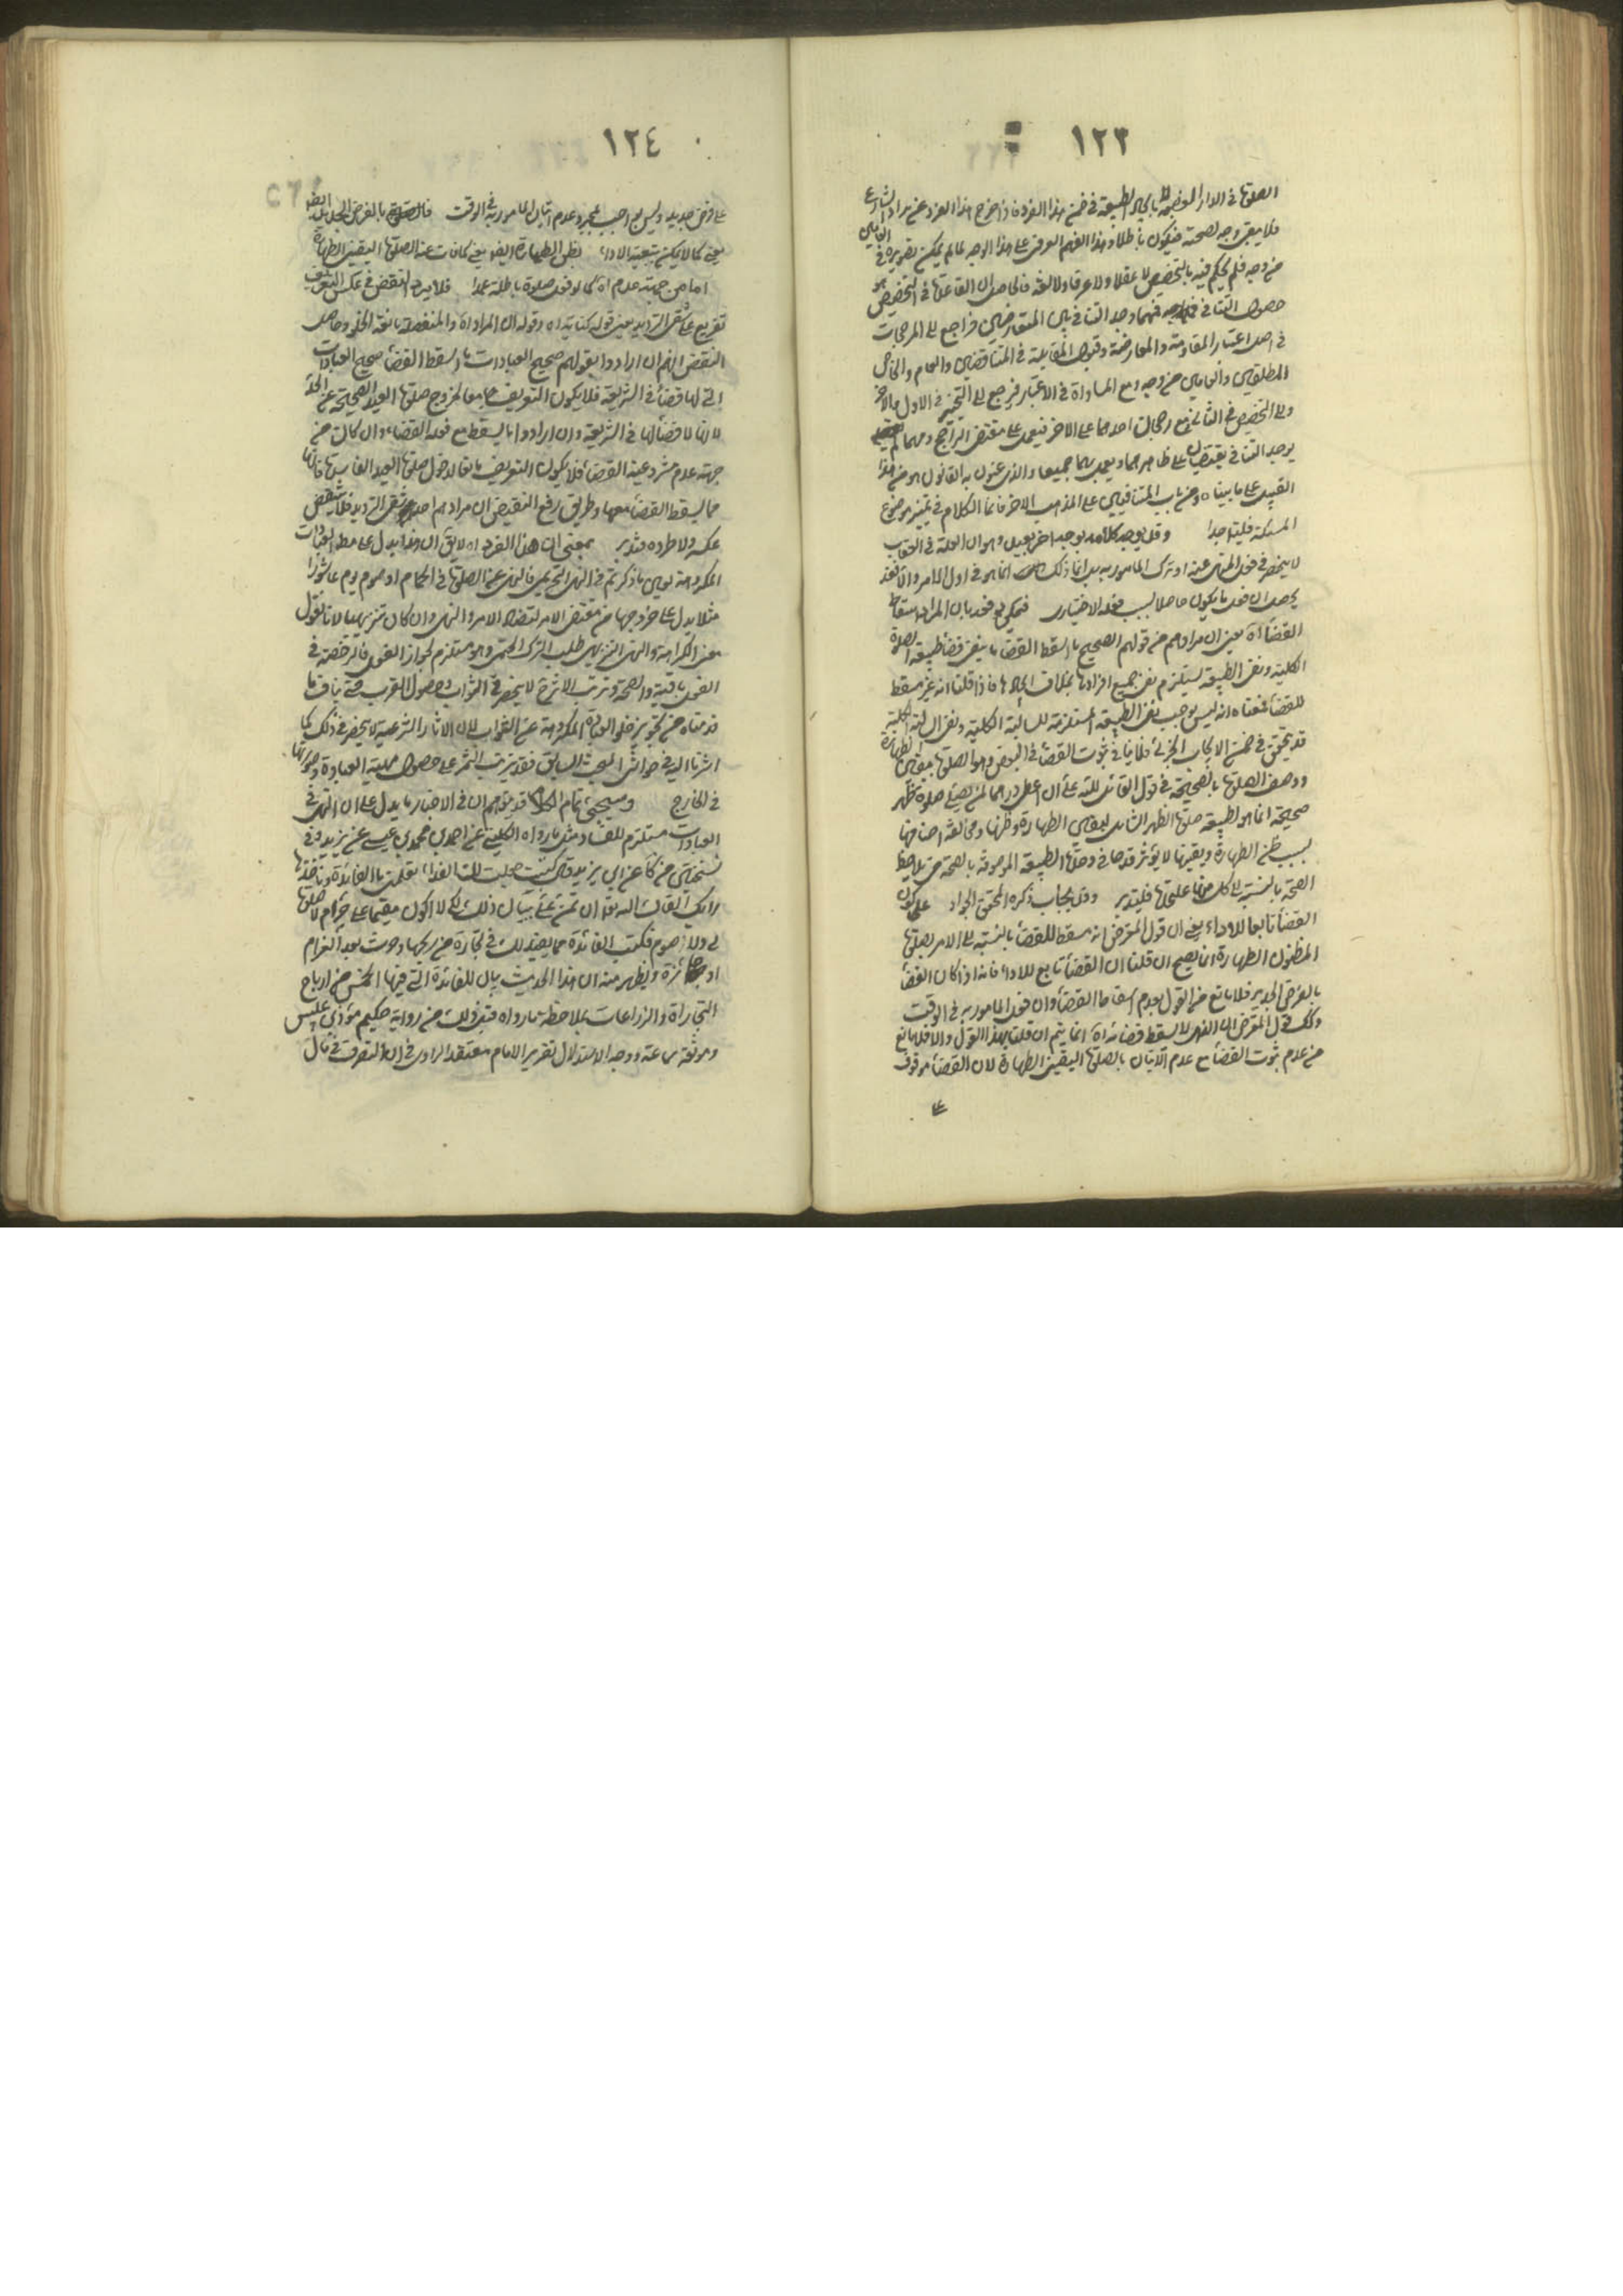 ١٢٣
الصلوة في الدار المغصوبة بالطبيعة في ضمن هذا الفرد فاذا خرج هذا الفرد عن مراد الشارع
فلا يبقى وجه لصحته فيكون باطلا وهذا الفهم العرفي على هذا الوجه لما لم يمكن تصويره في العامين
من وجه فلم يحكم فيه بالتخصيص لا عقلا ولا عرفا ولا لغة فالحاصل ان القاعدة في التخصيص هو
حصول التنافي فمهما وجد التنافي بين المتعارضين فراجع الى المرجحات
في اصل اعتبار المقاومة والمعارضة وقبول المقابلة في المتناقضين والعام والخاص
المطلقين والعامين من وجه ومع المساواة في الاعتبار فيرجع الى التخيير في الاول والاخر
والى التخصيص في الثاني ومع رجحان احدهما على الاخر فيعمل على مقتضى الراجح ومهما لم
يوجد التنافي يقتضيان على ظاهرهما ويعمل بهما جميعا والذي عنون به القانون هو من هذا
القبيل على ما بيناه ومن باب المتنافيين على المذهب الاخر فانما الكلام في تميز موضوع
المسئلة فليتد جدا وقد يوجه كلامه بوجه اخر بعيد وهو ان العلة في العقاب
لا ينحصر في فعل المنهي عنه او ترك المامور به بل انما ذلك انما هو في اول الامر والا فقد
يحصل ان فعل ما يكون حاصلا بسبب فعله الاختياري فيمكن فقد بان المراد اسقاط
القضاء اه يعني ان مرادهم من قولهم الصحيح ما اسقط القضاء ما ينفي قضاء طبيعة الصلوة
الكلية ونفي الطبيعة يستلزم نفي جميع افرادها بخلاف ايجادها فاذا قلنا انه غير مسقط
للقضاء فمعناه انه ليس يوجب نفي الطبيعة المستلزمة للسالبة الكلية ونفي السالبة الكلية
قد يتحقق في ضمن الايجاب الجزئي فلا ينافي ثبوت القضاء في البعض وهو الصلوة بيقين الطهارة
ووصف الصلوة بالصحيحة في قول القائل لله علي ان اعطي درهما لمن يصلي صلوة ظهر
صحيحة انما هو لطبيعة صلوة الظهر الشامل ليقين الطهارة وظنها ومخالفة اصنافها
بسبب ظن الطهارة ويقينها لا يؤثر قدحا في وحدة الطبيعة الموصوفة بالصحة حتى يلاحظ
الصحة بالنسبة الى كل منها على حدة فليتدبر وقد يجاب ذكره المحقق الجواد على كون
القضاء تابعا للاداء يعني ان قول المعترض انه مسقط للقضاء بالنسبة الى الامر بصلوة
المظنون الطهارة انما يصح ان قلنا ان القضاء تابع للاداء فانه اذا كان القضاء
بالفرض الجديد فلا مانع من القول بعدم اسقاط القضاء وان فعل المامور به في الوقت
وكذلك قول المعترض ان الذي لا يسقط قضائه اه انما يتم ان قلنا بهذا القول والا فلا مانع
من عدم ثبوت القضاء مع عدم الاتيان بالصلوة اليقيني الطهارة لان القضاء موقوف
على
١٢٤
على فرض جديد وليس بواجب بمجرد عدم اتيان المامور به في الوقت فالصلوة بالفرض الجديد ايضا
يعني كما لا يمكن بتبعية الاداء بظن الطهارة ايضا يعني كما فات عنه الصلوة اليقيني الطهارة
اما من جهة عدم اه كما لو فعل صلوة باطلة عمدا فلا يرد النقض في عكس التعريف
تفريع على شقي الترديد يعني قوله كنايته اه وقوله ان المراد اه والمنفصلة مانعة الخلو وحاصل
النقض انهم ان ارادوا بقولهم صحيح العبادات ما اسقط القضاء صحيح العبادات
التي لها قضاء في الشريعة فلا يكون التعريف جامعا لخروج صلوة العيد الصحيحة عن الحد
لانها لا قضاء لها في الشريعة وان ارادوا ما يسقط مع فعله القضاء وان كان من
جهة عدم مشروعية القضاء فلا يكون التعريف مانعا لدخول صلوة العيد الفاسدة فانها
مما يسقط القضاء معها وطريق رفع النقيض ان مرادهم احد شقي الترديد فلا ينقض
عكسه ولا طرده فتدبر بمعنى ان هذا الفرد اه لا يق ان هذا يدل على مط العبادات
المكروهة يومي ما ذكر تم في النهي التحريمي فالنهي عن الصلوة في الحمام او صوم يوم عاشورا
مثلا يدل على خروجها من مقتضى الامر لتضاد الامر والنهي وان كان تنزيهيا لانا نقول
معنى الكراهة والنهي التنزيهي طلب الترك الحتمي وهو مستلزم لجواز الفعل فالرخصة في
الفعل باقية والصحة وترتب الاثر لا ينحصر في الثواب وحصول القرب حتى ينافي ما
قدمناه من تجويز خلو العبادة المكروهة عن الثواب لان الاثار الشرعية لا ينحصر في ذلك كما
اشرنا اليه في حواشي المبحث السابق فقد يترتب الثمر على حصول مهية العبادة وصورتها
في الخارج وسيجيء تمام الكلام قد يتوهم ان في الاخبار ما يدل على ان النهي في
العبادات مستلزم للفساد مثل ما رواه الكليني عن احمد بن محمد بن عيسى عن يزيد وفي
نسختي من كا عن ابن يزيد قال كتبت جعلت لك الفداء تعلمني ما الفائدة وما حدها
رايك ابقاك الله تعالى ان تمن علي ببيان ذلك لكي لا اكون مقيما على حرام لا صلوة
لي ولا صوم فكتب الفائدة مما يفيد اليك في تجارة من ربحها وحرث بعد الغرام
او جائزة ويظهر منه ان هذا الحديث بيان للفائدة التي فيها الخمس من ارباح
التجارات والزراعات بملاحظة ما رواه قبل ذلك من رواية حكيم مؤذن بني عبس
وموثقة سماعة ووجه الاستدلال تقرير الامام معتقد الراوي في ان التصرف في مال